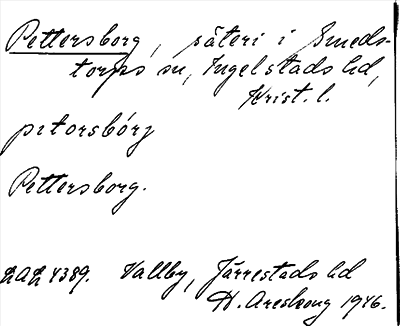 Pettersborg, säteri i Smeds-
torps sn, Ingelstads hd,
Krist. l.
petorsbórj
Pettersborg.
LAL 4389. Vallby, Järrestads hd
H. Areskoug 1946.